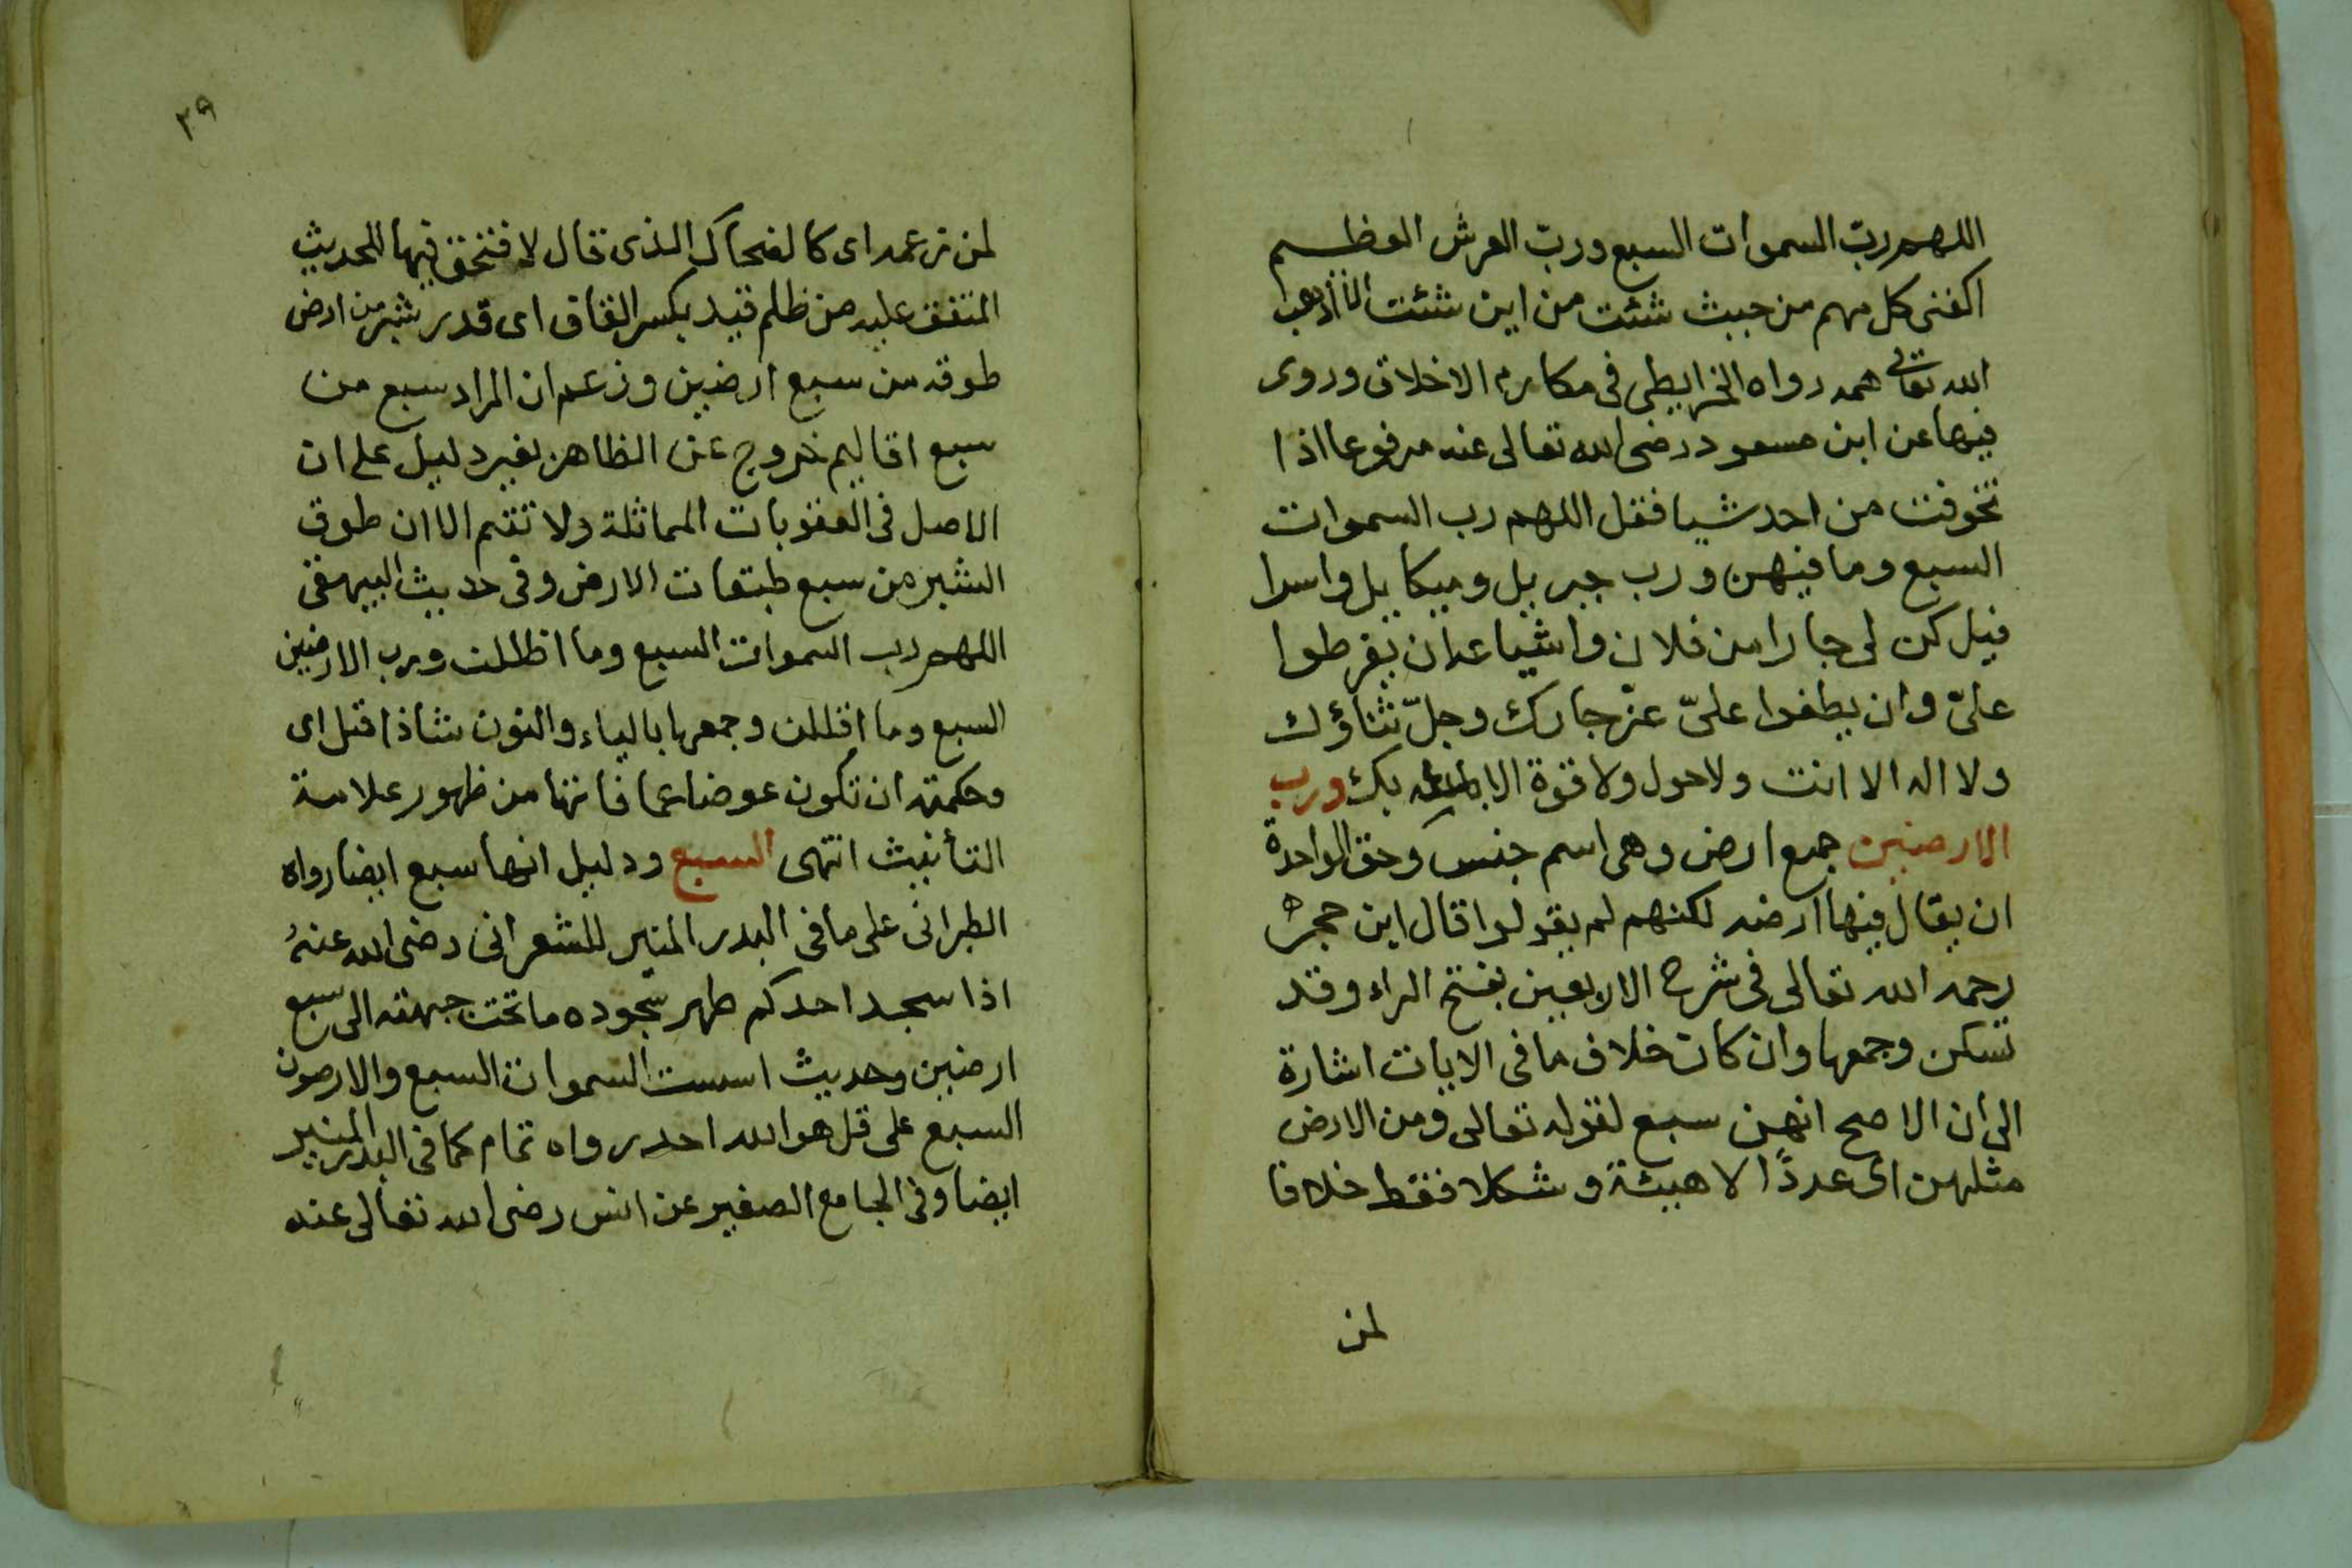 اللهم ربّ السموات السبع وربّ العرش العظيم
اكفنى كل مهم من حيث شئت من اين شئت الا أذهب
الله تعالى همه رواه الخرايطى فى مكارم الاخلاق وروى
فيها عن ابن مسعود رضى الله تعالى عنه مرفوعا اذا
تخوفت من احد شيا فقل اللهم رب السموات
السبع وما فيهن ورب جبريل وميكاييل واسرا
فيل كن لى جارا من فلان واشياعه ان يفرطوا
علىّ وان يطغوا علىّ عزّ جارك وجلّ ثناؤك
ولا اله الا انت ولا حول ولا قوة الا بك ورب
الارضين جمع ارض وهى اسم جنس وحق الواحدة
ان يقال فيها ارضه لكنهم لم يقولوا قال ابن حجر
رحمه الله تعالى فى شرح الاربعين بفتح الراء وقد
تسكن وجمعها وان كان خلاف ما فى الايات اشارة
الى ان الاصح انهن سبع لقوله تعالى ومن الارض
مثلهن اى عددًا لا هيئة وشكلا فقط خلافا
لمن
٣٩
لمن زعمه اى كالضحاك الذى قال لا فتق فيها للحديث
المتفق عليه من ظلم قيد بكسر القاف اى قدر شبر من ارض
طوقه من سبع ارضين وزعم ان المراد سبع من
سبع اقاليم خروج عن الظاهر بغير دليل على ان
الاصل فى العقوبات المماثلة ولا تتم الا ان طوق
الشبر من سبع طبقات الارض وفى حديث البيهقى
اللهم رب السموات السبع وما اظللت ورب الارضين
السبع وما اقللن وجمعها بالياء والنون شاذا قتل اى
وحكمته ان تكون عوضا عما فاتها من ظهور علامة
التأنيث انتهى السبع ودليل انها سبع ايضا رواه
الطبرانى على ما فى البدر المنير للشعرانى رضى الله عنهُ
اذا سجد احدكم طهر سجوده ما تحت جبهته الى سبع
ارضين وحديث اسست السموات السبع والارضون
السبع على قل هو الله احد رواه تمام كما فى البدر المنير
ايضا وفى الجامع الصغير عن انس رضى الله تعالى عنه